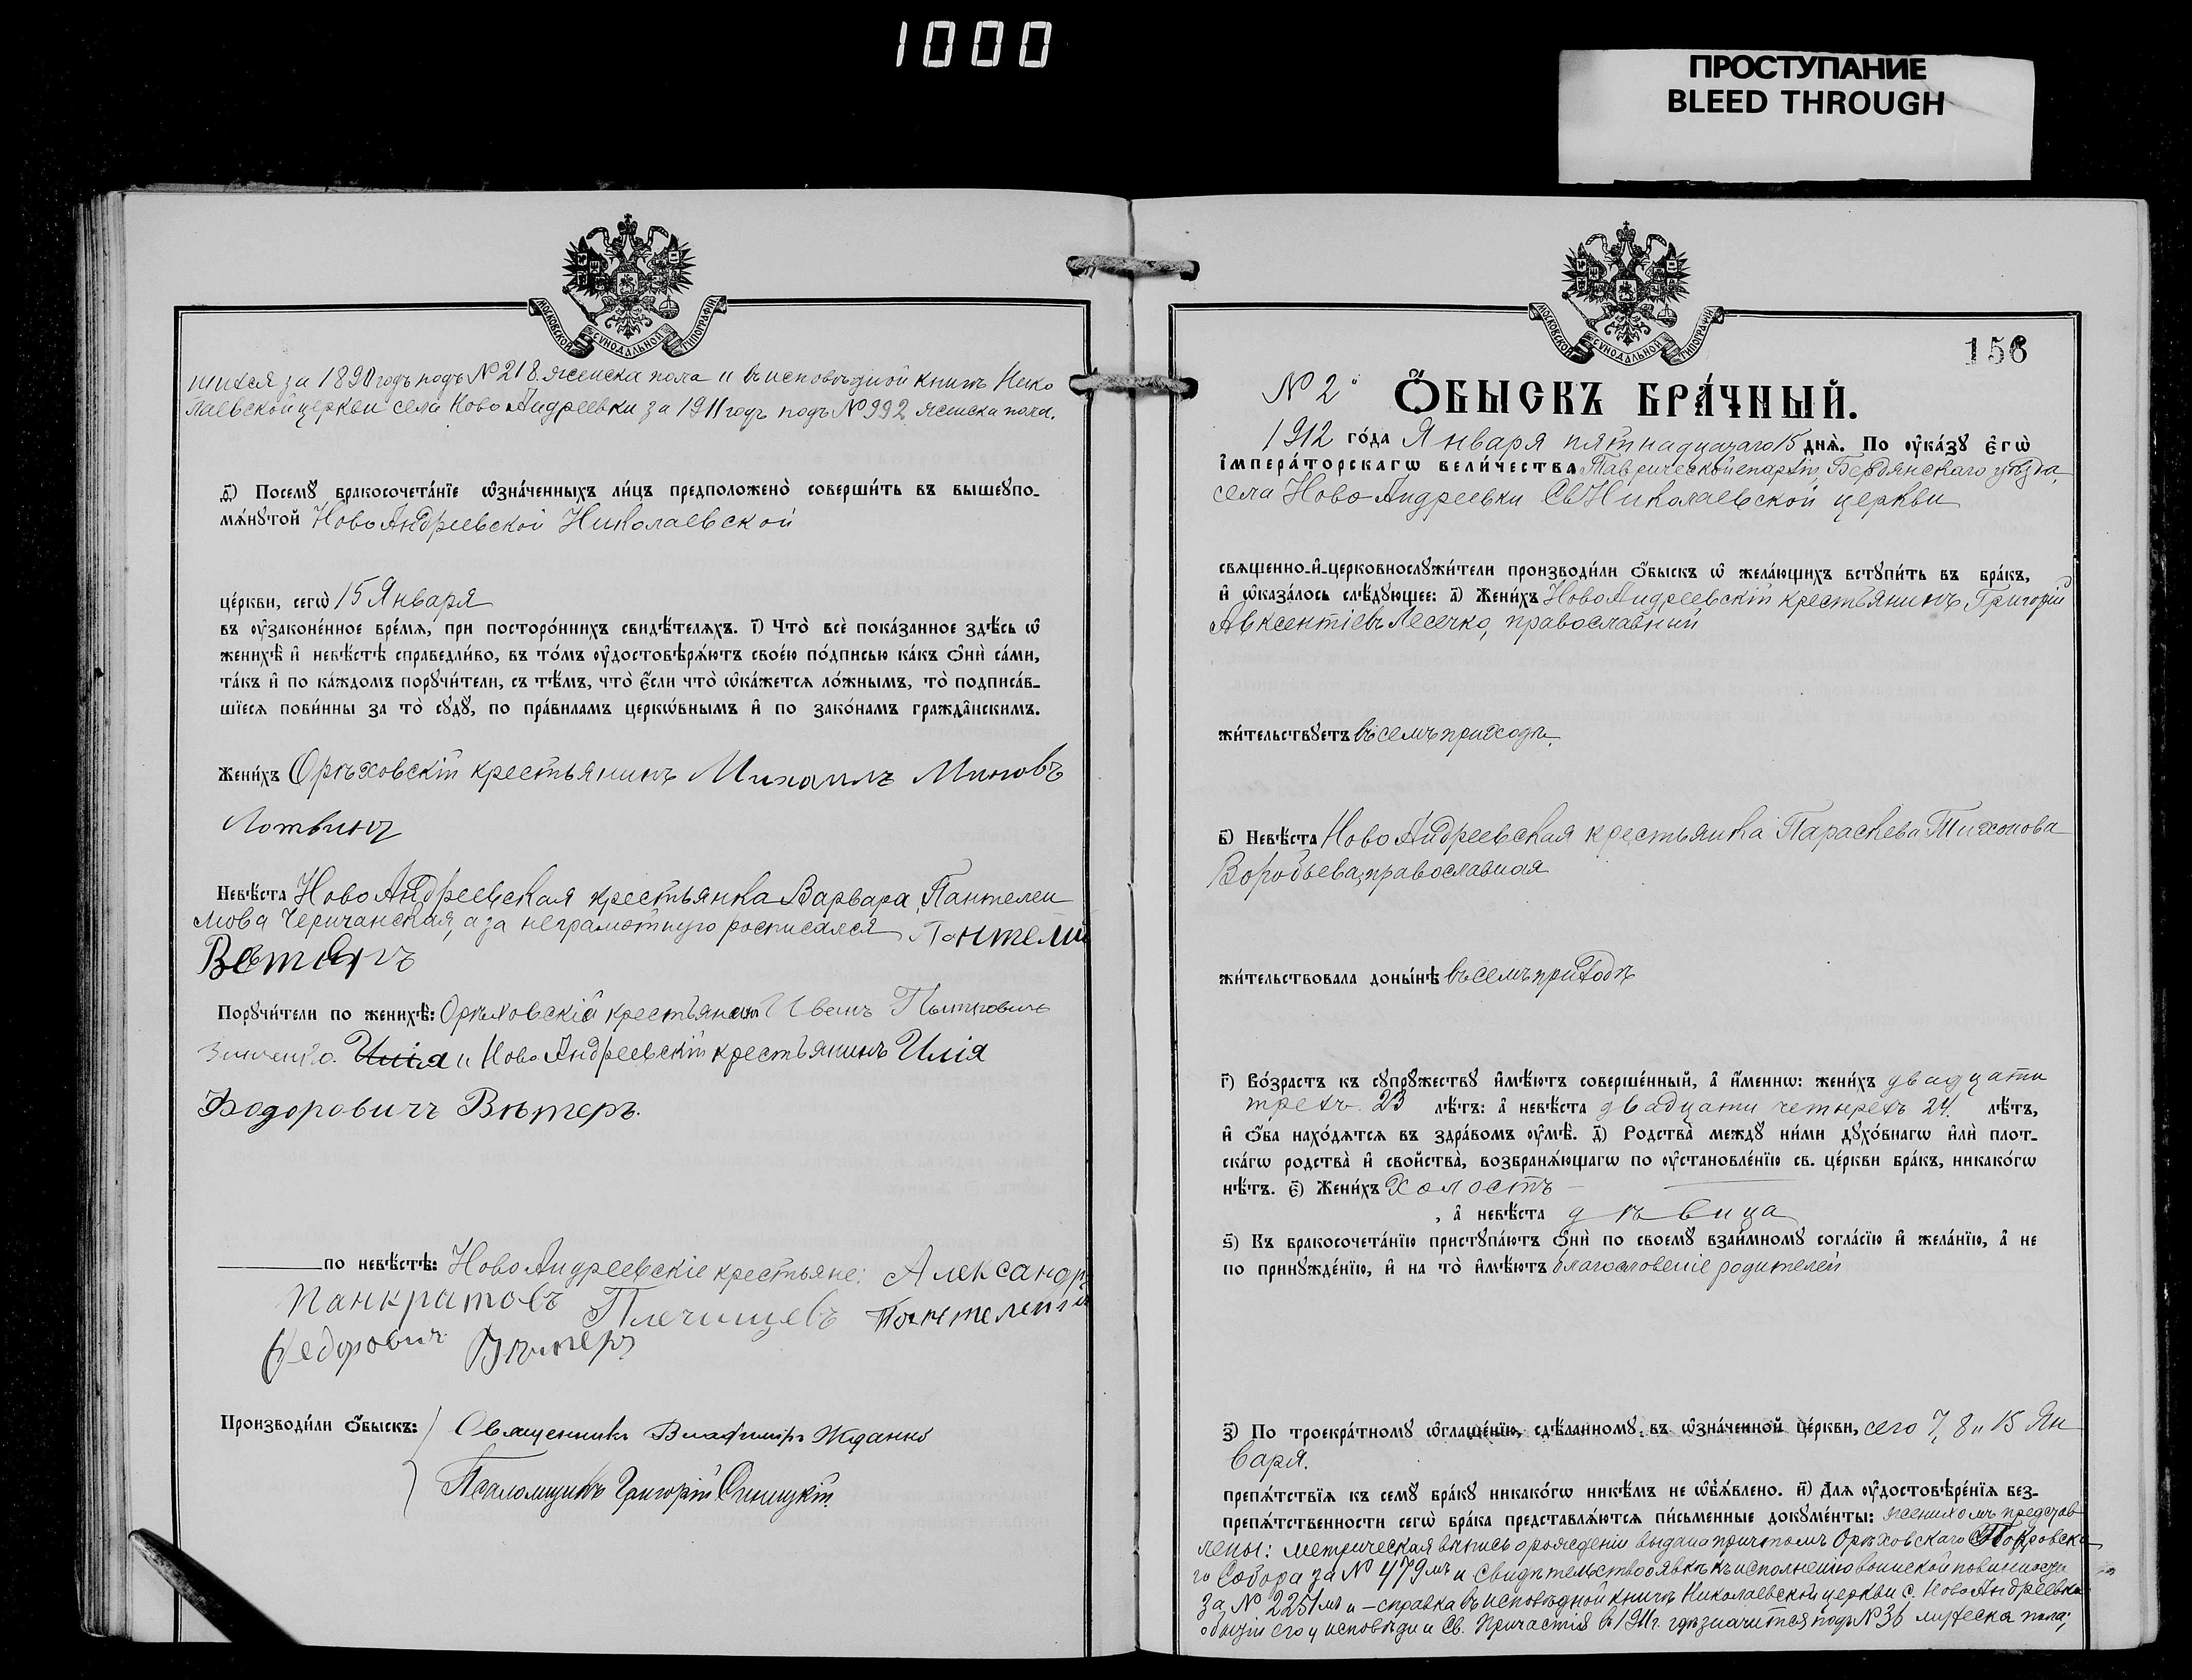 1000
ПРОСТУПАНИЕ
BLEED THROUGH
МОСКОВСКОЙ СѴНОДАЛЬНОЙ ТИПОГРАФІИ
чится за 1890 годъ подъ № 218. женска пола и въ исповѣдной книгѣ Нико
лаевской церкви села Ново Андреевки за 1911 годъ подъ № 992 женска пола.
д҃) Посемꙋ бракосочета́нїе ѡ҆зна́ченныхъ ли́цъ предположено̀ соверши́ть въ вышеꙋпо-
мѧ́нꙋтой Ново Андреевской Николаевской
це́ркви, сегѡ̀ 15 Января
въ ᲂу҆законе́нное вре́мѧ, при посторо́ннихъ свидѣ́телѧхъ. і҃) Что̀ всѐ пока́занное здѣ́сь ѡ҆
женихѣ̀ и҆ невѣ́стѣ справедли́во, въ то́мъ ᲂу҆достовѣрѧ́ютъ свое́ю по́дписью ка́къ ѻ҆нѝ са́ми,
та́къ и҆ по ка́ждомъ порꙋчи́тели, съ тѣ́мъ, что̀ є҆́сли что̀ ѡ҆ка́жетсѧ ло́жнымъ, то̀ подписа́в-
шїесѧ пови́нны за то̀ сꙋдꙋ̀, по пра́виламъ церкѡ́внымъ и҆ по зако́намъ гражда̂нскимъ.
Жени́хъ Орѣховскій крестьянинъ Михаилъ Миновъ
Лотвинъ
Невѣ́ста Ново Андреевская крестьянка Варвара Пантелеи
мова Черичанская, а за неграмотную росписался Пантелий
Ветеръ
Порꙋчи́тели по женихѣ̀: Орѣховскій крестьянинъ Иванъ
Зинченко. Илія и Ново Андреевскій крестьянинъ Илія
Ѳодоровичъ Вѣтеръ.
по невѣ́стѣ: Ново Андреевскіе крестьяне: Александръ
Панкратовъ Плечищевъ Пантелеи
Федоровичъ Вѣтеръ
Производи́ли ѻ҆́быскъ: Священникъ Владиміръ Жданко
Псаломщикъ Григорій Синицкій
МОСКОВСКОЙ СѴНОДАЛЬНОЙ ТИПОГРАФІИ
156
№ 2й
Ѻ҆́БЫСКЪ БРА́ЧНЫЙ.
1912 го́да Января пятнадцатаго 15 днѧ̀. По ᲂу҆ка́зꙋ є҆гѡ̀
і҆мпера́торскагѡ вели́чества Таврической епархіи, Бердянскаго уѣзда,
села Ново Андреевки Св Николаевской церкви
свѧщенно-и҆-церковнослꙋжи́тели производи́ли ѻ҆́быскъ ѡ҆ жела́ющихъ встꙋпи́ть въ бра́къ,
и҆ ѡ҆каза́лось слѣ́дꙋющее: а҃) Жени́хъ Ново Андреевскій крестьянинъ Григорій
Авксентіевъ Лесечко, православный
жи́тельствꙋетъ въ семъ приходѣ.
б҃) Невѣ́ста Ново Андреевская крестьянка Параскева Тихонова
Воробьева, православная
жи́тельствовала доны́нѣ въ семъ приходѣ
г҃) Во́зрастъ къ сꙋпрꙋ́жествꙋ и҆мѣ́ютъ соверше́нный, а҆ и҆́меннѡ: жени́хъ двадцати
трехъ 23 лѣ́тъ: а҆ невѣ́ста двадцати четырехъ 24. лѣ́тъ,
и҆ ѻ҆́ба нахо́дѧтсѧ въ здра́вомъ ᲂу҆мѣ̀. д҃) Родства̀ междꙋ ни́ми дꙋхо́внагѡ и҆лѝ плот-
ска́гѡ родства̀ и҆ свойства̀, возбранѧ́ющагѡ по ᲂу҆становле́нїю св. це́ркви бра́къ, никако́гѡ
нѣ́тъ. є҃) Жени́хъ холостъ
, а҆ невѣ́ста дѣвица
ѕ҃) Къ бракосочета́нїю пристꙋпа́ютъ ѻ҆нѝ по своемꙋ̀ взаи́мномꙋ согла́сїю и҆ жела́нїю, а҆ не
по принꙋжде́нїю, и҆ на то̀ и҆мѣ́ютъ благословеніе родителей
з҃) По троекра́тномꙋ ѡ҆глаше́нїю, сдѣ́ланномꙋ въ ѡ҆зна́ченной це́ркви, сего 7, 8 и 15 Ян
варя.
препѧ́тствїѧ къ семꙋ̀ бра́кꙋ никако́гѡ никѣ́мъ не ѡ҆б̾ѧ́влено. и҃) Длѧ ᲂу҆достовѣре́нїѧ без-
препѧ́тственности сегѡ̀ бра́ка представлѧ́ютсѧ пи́сьменные докꙋме́нты: женихомъ представ
лены: метрическая выпись о рожденіи выдана причтомъ Орѣховскаго Покровска
го Собора за № 479мъ и Свидѣтельство о явкѣ къ исполненію воинской повинности
за № 2251мъ и – справка въ исповѣдной книгѣ Николаевской церкви с. Ново Андреевка
о бытіи его у исповѣди и Св. Причастія въ 1911г. гдѣ значится подъ № 36 мужеска пола;